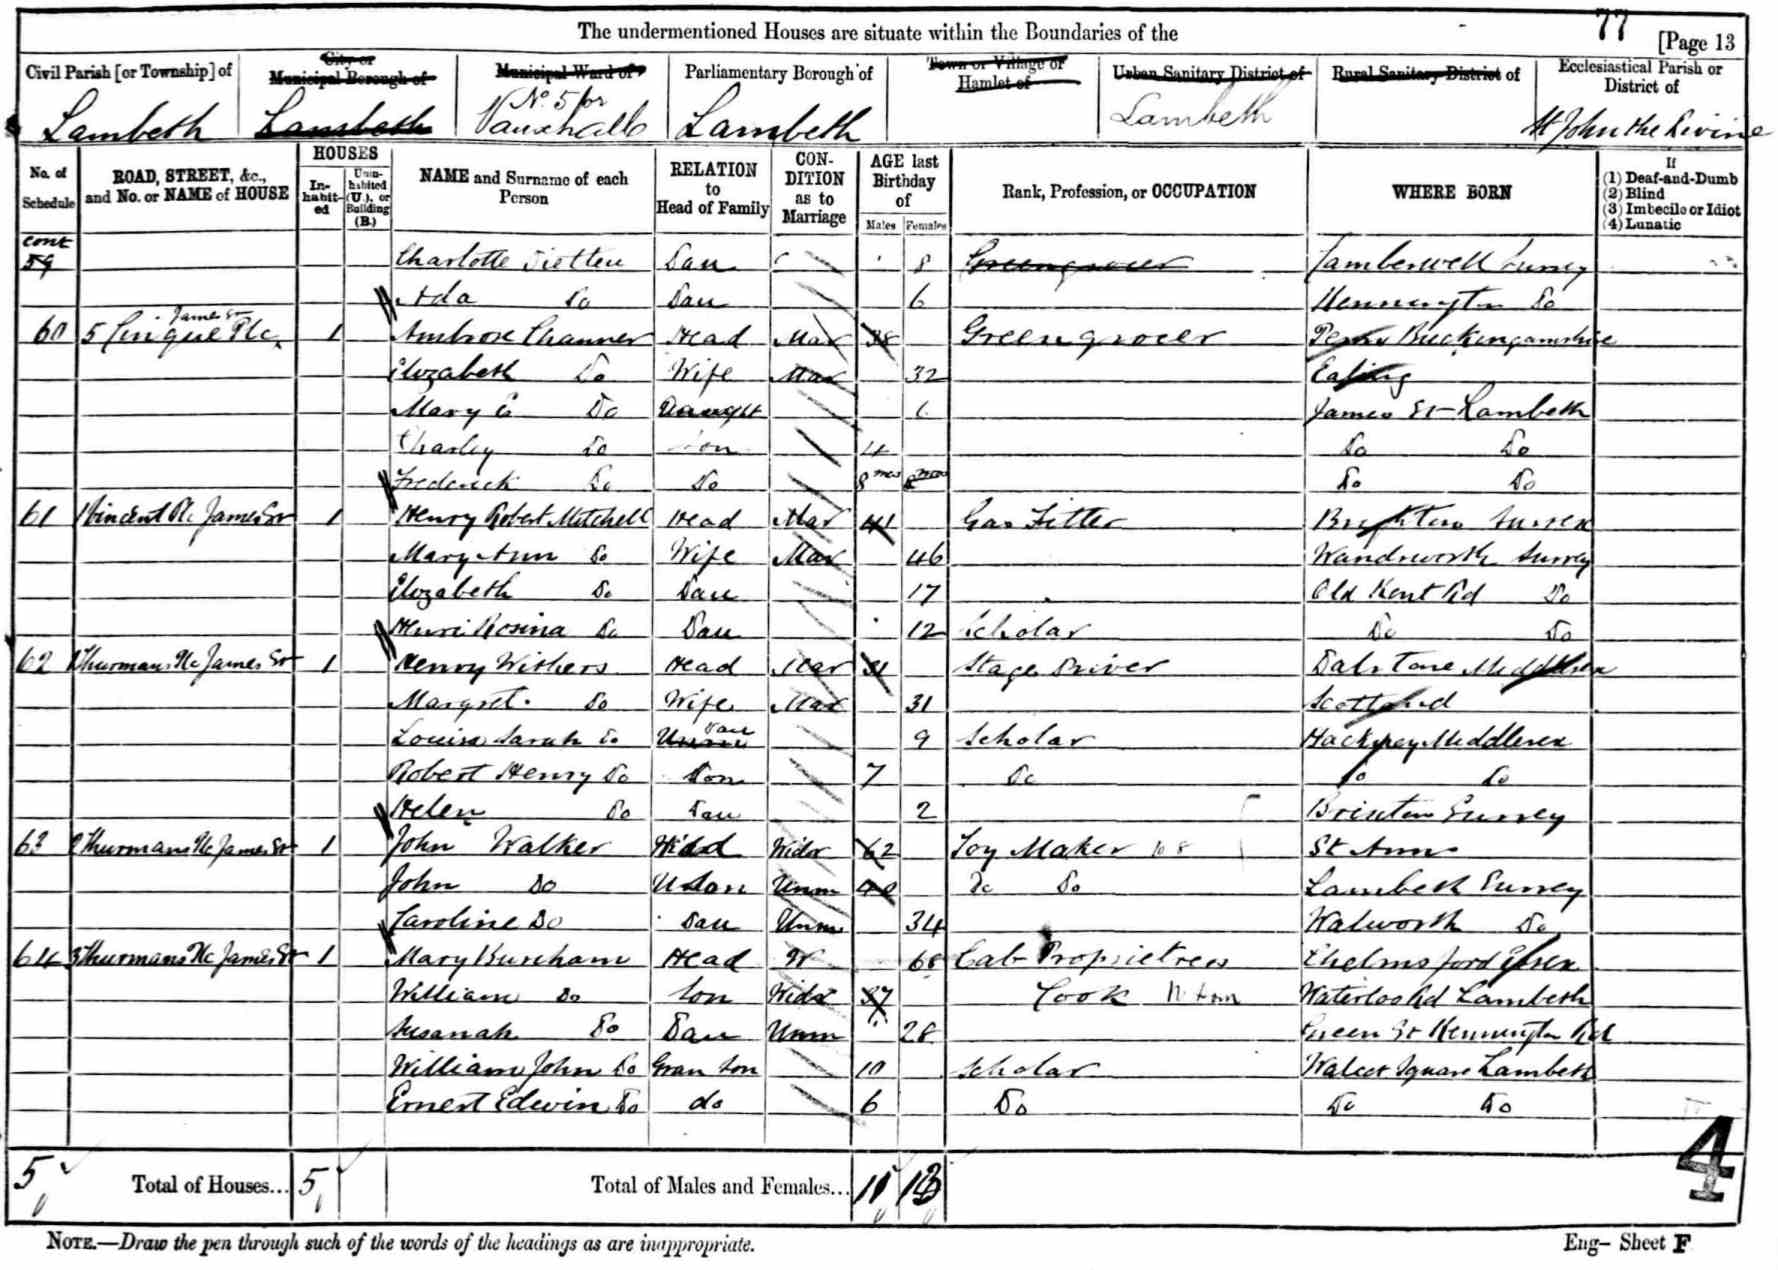 77
The undermentioned Houses are situate within the Boundaries of the [Page 13
Civil Parish [or Township] of City or Municipal Borough of Municipal Ward of Parliamentary Borough of Town or Village or Hamlet of Urban Sanitary District of Rural Sanitary District of Ecclesiastical Parish or District of
Lambeth Lambeth No. 5 or Vauxhall Lambeth Lambeth St John the Divine
No. of Schedule ROAD, STREET, &c., and No. or NAME of HOUSE HOUSES Inhabited Uninhabited (U.), or Building (B.) NAME and Surname of each Person RELATION to Head of Family CONDITION as to Marriage AGE last Birthday of Males Females Rank, Profession, or OCCUPATION WHERE BORN If (1) Deaf-and-Dumb (2) Blind (3) Imbecile or Idiot (4) Lunatic
cont
59 Charlotte Dau 8 Greengrocer Camberwell Surrey
Ada Do Dau 6 Kennington Do
60 5 Cinque Plc. James St 1 Ambrose Channer Head Mar 38 Greengrocer Penn Buckingamshire
Elizabeth Do Wife Mar 32 Ealing
Mary E Do Daught 6 James St Lambeth
Charley Do Son 4 Do Do
Frederick Do Do 8 mos 8 mos Do Do
61 1 Vincent Plc James St 1 Henry Robert Mitchell Head Mar 41 Gas Fitter Brighton Sussex
Mary Ann Do Wife Mar 46 Wandsworth Surrey
Elizabeth Do Dau 17 Old Kent Rd Do
Henri Rosina Do Dau 12 Scholar Do Do
62 1 Thurmans Plc James St 1 Henry Withers Head Mar 31 Stage Driver Dalstone Middlesex
Margret. Do Wife Mar 31 Scotland
Louisa Sarah Do Dau 9 Scholar Hackney Middlesex
Robert Henry Do Son 7 Do Do Do
Helen Do Dau 2 Brixton Surrey
63 2 Thurmans Plc James St 1 John Walker Head Widr 62 Toy Maker St Anns
John Do Unm 40 Do Do Lambeth Surrey
Caroline Do Dau Unm 34 Walworth Do
64 3 Thurmans Plc James St 1 Mary Burcham Head W 68 Cab Proprietress Chelmsford Essex
William Do Son Widr 37 Cook Waterloo Rd Lambeth
Susanah Do Dau Unm 28 Queen St Kennington Rd
William John Do Gran Son 10 Scholar Walcot Square Lambeth
Ernest Edwin Do do 6 Do Do Do
5 Total of Houses... 5 Total of Males and Females... 11 13
4
NOTE.—Draw the pen through such of the words of the headings as are inappropriate. Eng— Sheet F